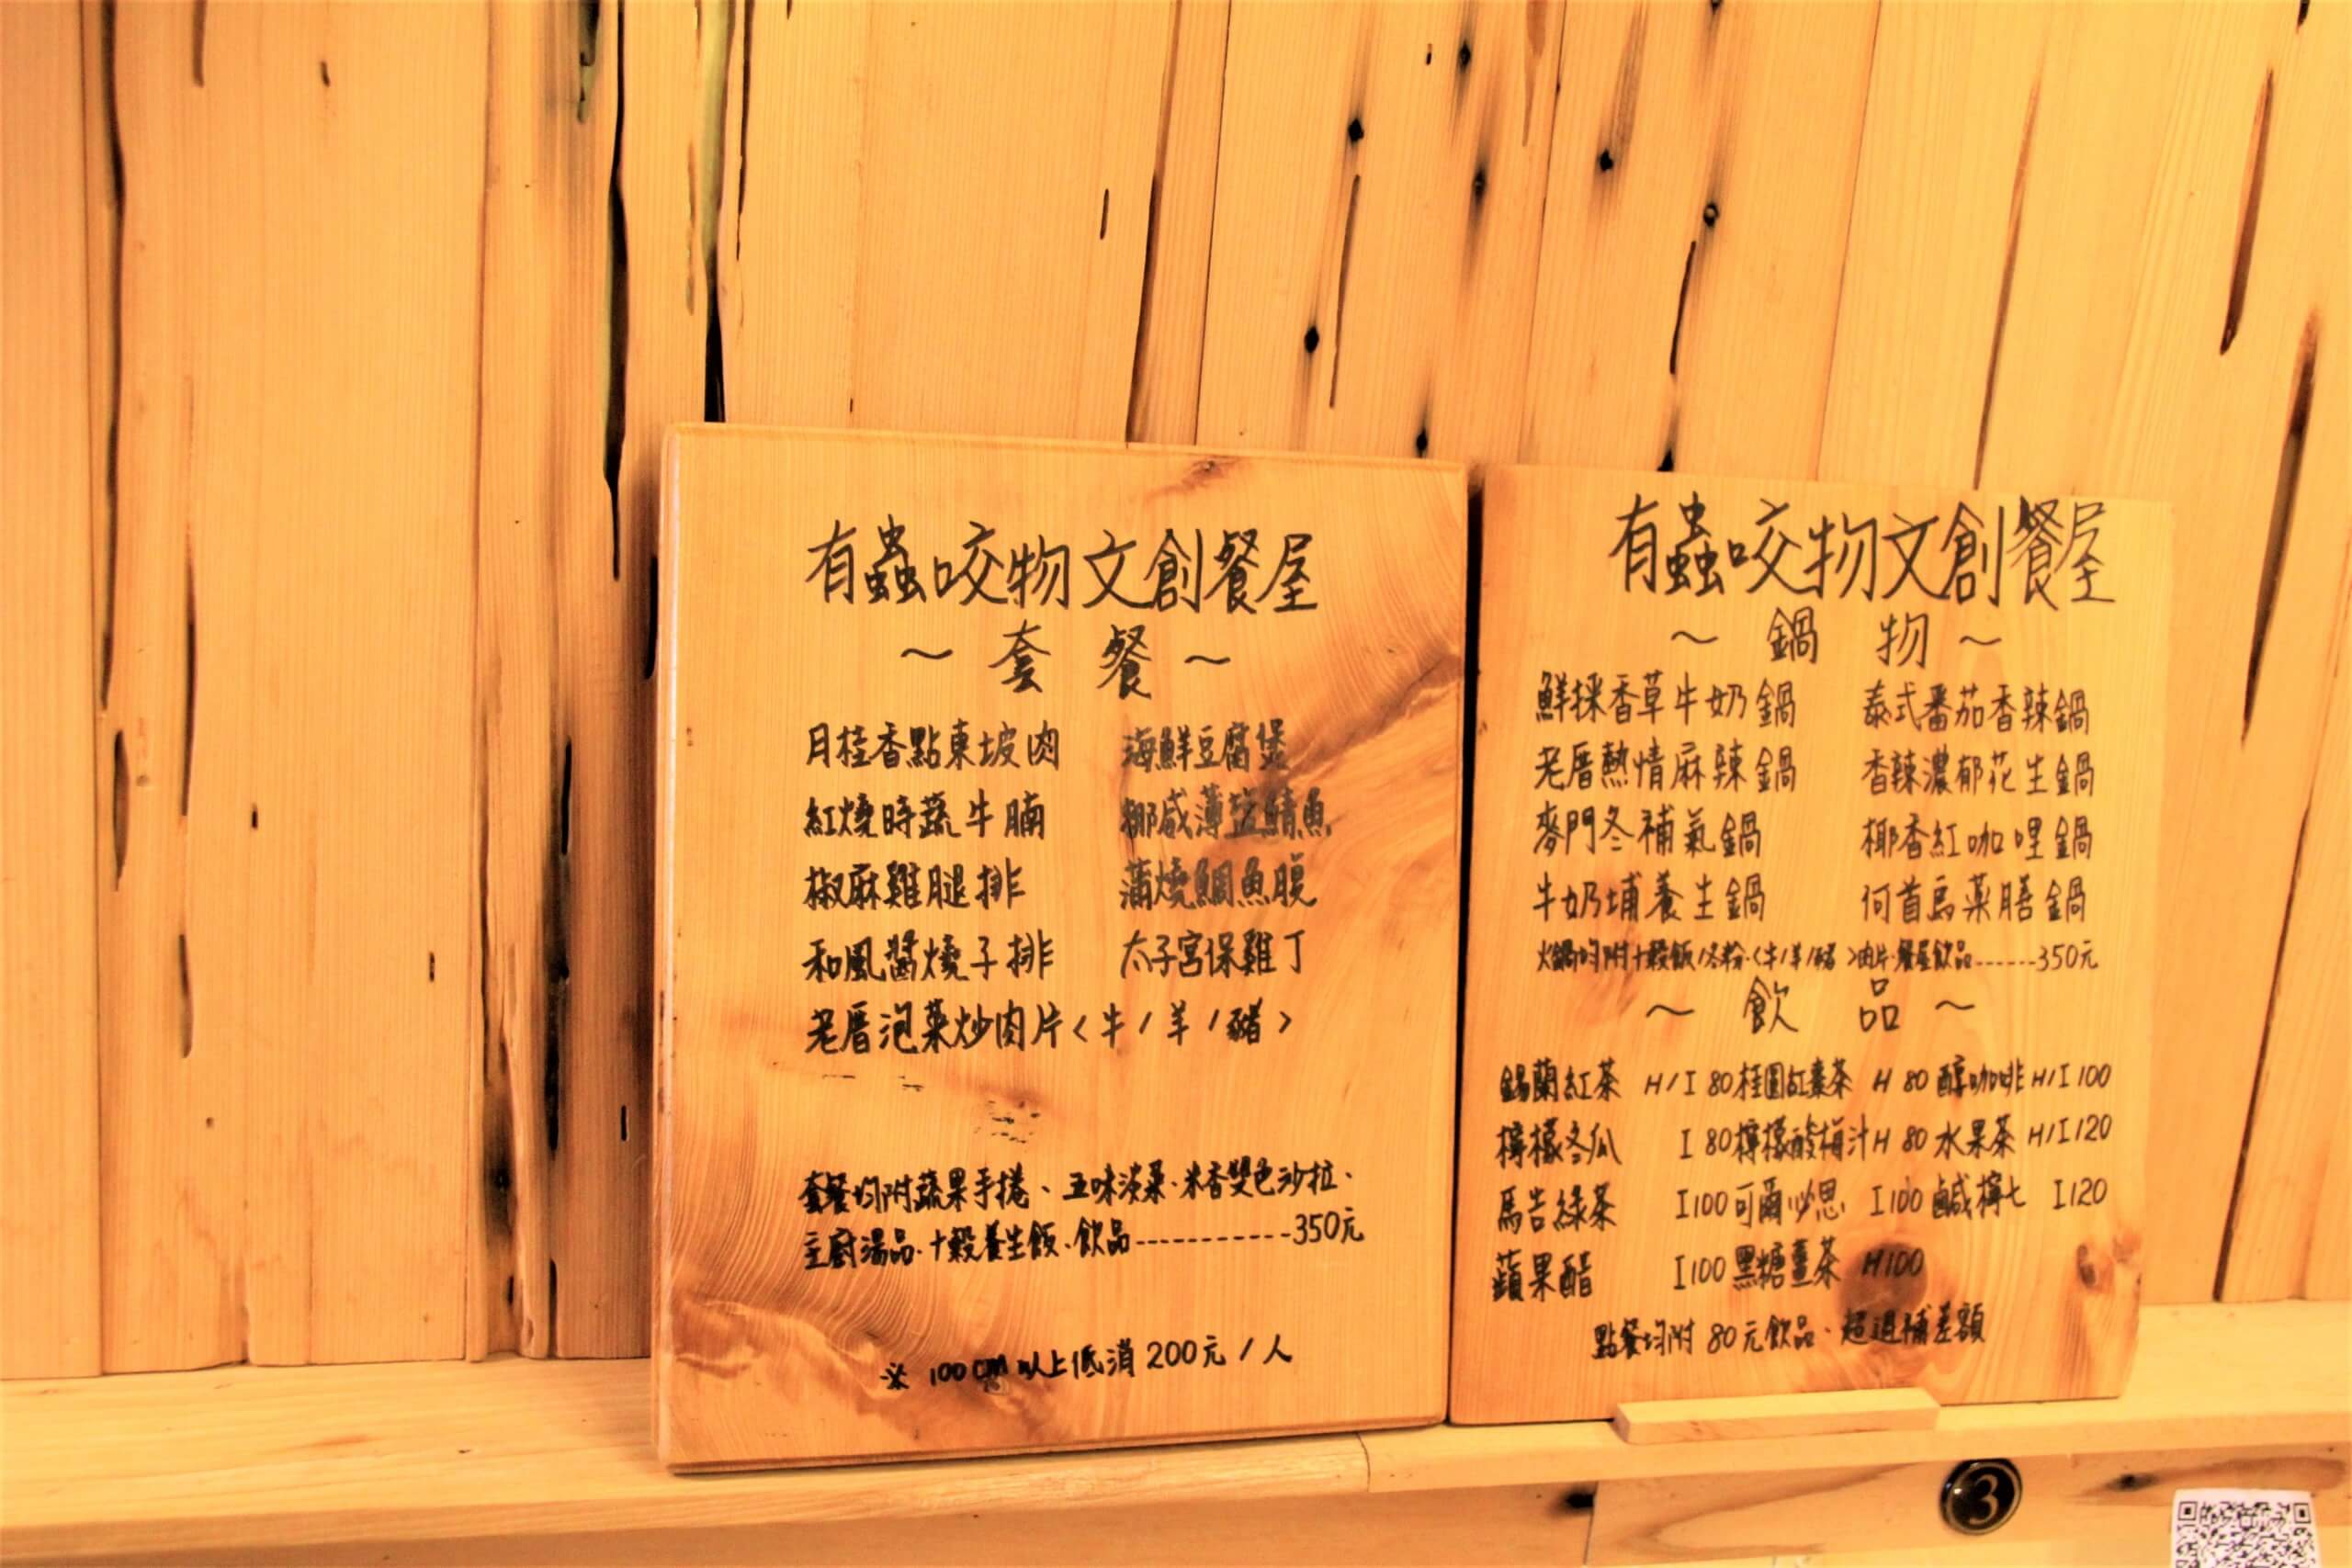 有蟲咬物文創餐屋
～套餐～
月桂香點東坡肉 海鮮豆腐煲
紅燒時蔬牛腩 挪威薄鹽鯖魚
椒麻雞腿排 蒲燒鯛魚腹
和風醬燒子排 太子宮保雞丁
老厝泡菜炒肉片＜牛/羊/豬＞
套餐均附蔬果手捲、五味淡菜、米香雙色沙拉、
主廚湯品、十穀養生飯、飲品-----------350元
※ 100cm以上低消200元/人
有蟲咬物文創餐屋
～鍋物～
鮮採香草牛奶鍋 泰式番茄香辣鍋
老厝熱情麻辣鍋 香辣濃郁花生鍋
麥門冬補氣鍋 椰香紅咖哩鍋
牛奶埔養生鍋 何首烏菜膳鍋
火鍋均附十穀飯/冬粉、＜牛/羊/豬＞肉片、餐屋飲品------350元
～飲品～
錫蘭紅茶 H/I 80 桂圓紅棗茶 H 80 醇咖啡 H/I 100
檸檬冬瓜 I 80 檸檬酸梅汁 H 80 水果茶 H/I 120
馬告綠茶 I 100 可爾必思 I 100 鹹檸七 I 120
蘋果醋 I 100 黑糖薑茶 H 100
點餐均附80元飲品、超過補差額
3